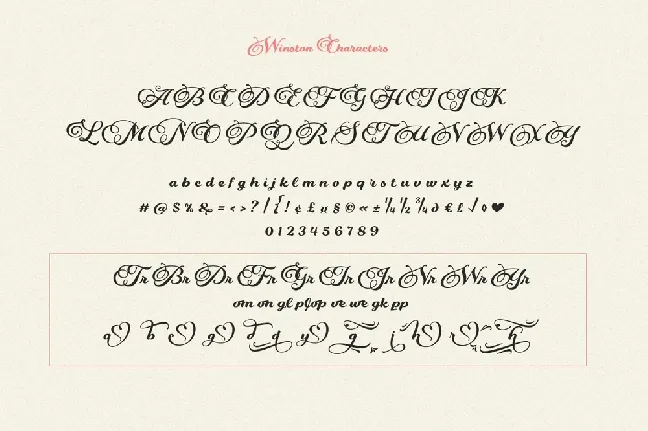 Winston Characters
A B C D E F G H I J K
L M N O P Q R S T U V W X Y
a b c d e f g h i j k l m n o p q r s t u v w x y z
# @ $ % & = < > ? / { ! ¢ £ ¤ § © « ± ¼ ½ ¾ ∂ € £ √ ◊ ♥
0 1 2 3 4 5 6 7 8 9
Tr Br Dr Fr Gr Ir Jr Nr Wr Yr
gl ve we gk pp